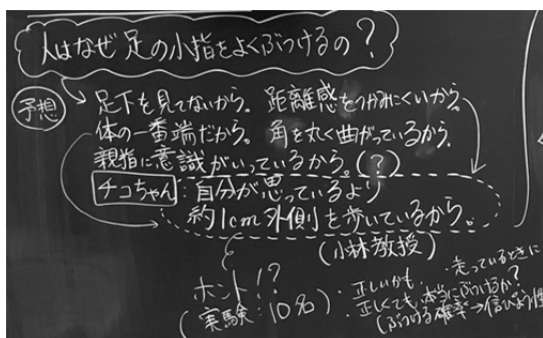 人はなぜ足の小指をよくぶつけるの?
予想
足下を見てないから。 距離感をつかみにくいから。
体の一番端だから。 角を丸く曲がっているから。
親指に意識がいっているから。(?)
チコちゃん:自分が思っているより
約1cm外側を歩いているから。
(小林教授)
ホント!?
(実験:10名)
・正しいかも ・走っているときに
・正しくても本当にぶつけるか?
(ぶつける確率→信ぴょう性